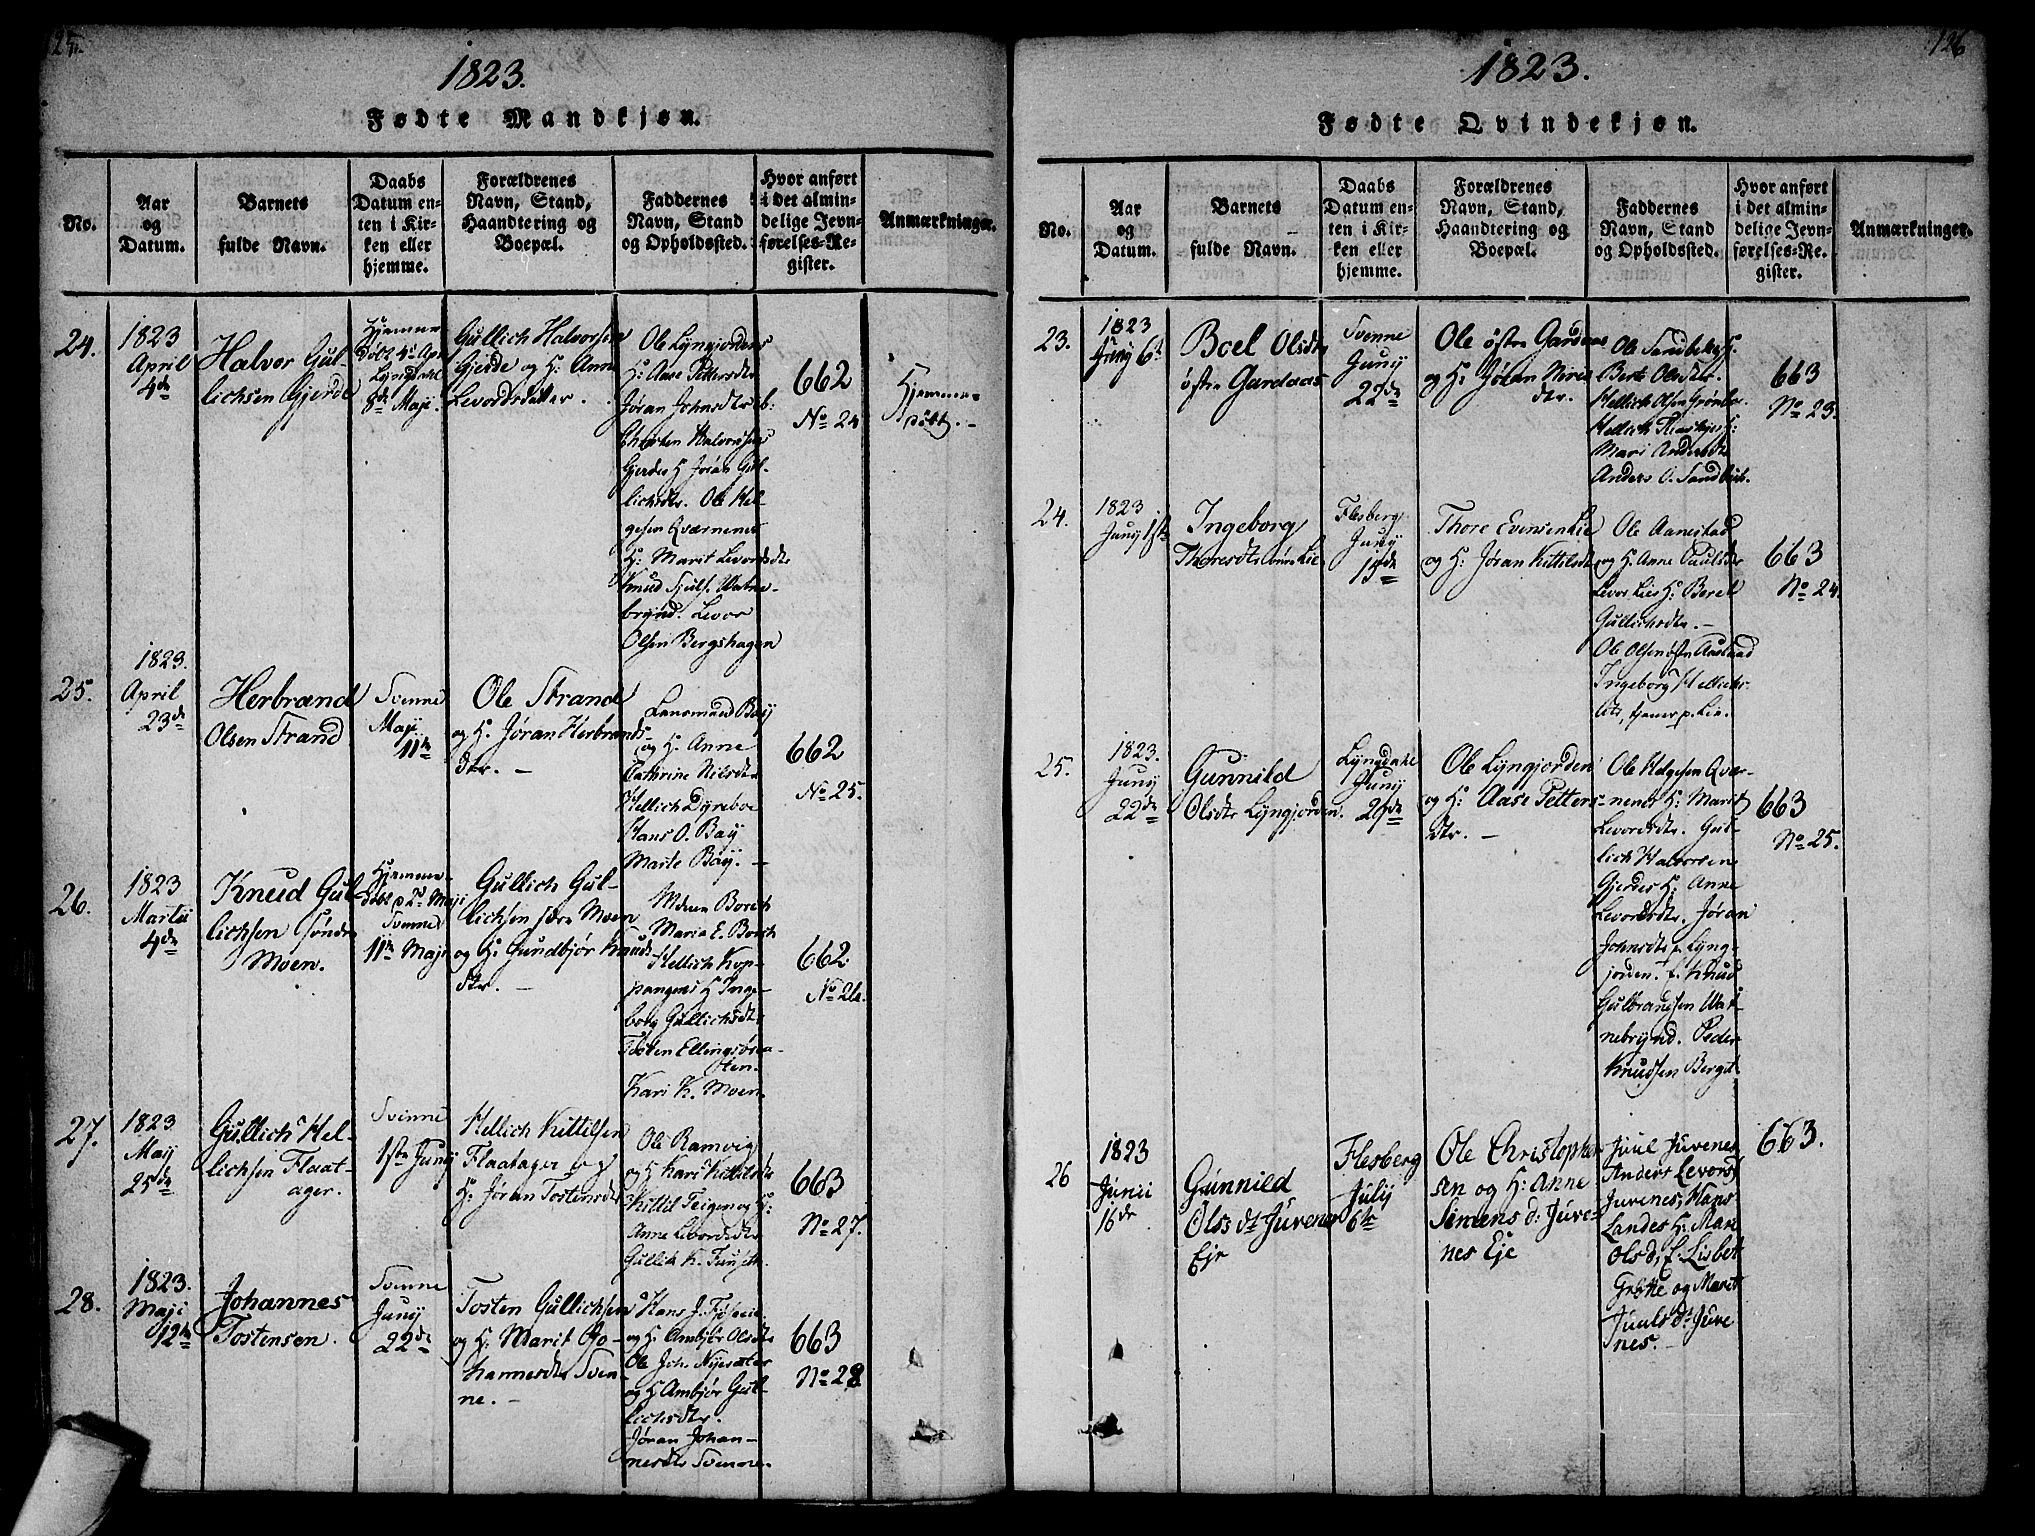 125.
1823.
Fødte Mandkjøn.
No.
Aar
og
Datum.
Barnets
fulde Navn.
Daabs
Datum en-
ten i Kir-
ken eller
hjemme.
Forældrenes
Navn, Stand,
Haandtering og
Boepæl.
Faddernes
Navn, Stand
og Opholdssted.
Hvor anført
i det almin-
delige Jevn-
førelses-Re-
gister.
Anmærkninger.
24.
1823
April
4de
Halvor Gul-
lichsen Gjerde
Hjemme
døbt 4d Apr
Lyngdahl
8de Maji.
Gullich Halvorsen
Gjerde og H. Anne
Levordsdatter.
Ole Lyngjordens
H: Aase Pettersdtr
Jøran Johnsdtr
Christen Halvorsens
Gjerdes H Jøran Gul-
lichsdtr. Ole Hel-
gesen Qværnenes
H: Marit Levordsdtr
Knud Watne-
brynd. Levor
Olsen Bergshagen
662
No 24
Hjemme-
døbt. -
25.
1823.
April
23de
Herbrand
Olsen Strand
Svenne
Maji
11te
Ole Strand
og H. Jøran Herbrands-
dtr. -
Lensmand Bay
og H. Anne
Cathrine Nilsdtr
Hellich Dyreboe
Hans O. Bay
Marte Bay. -
662
No 25.
26.
1823
Martii
4de
Knud Gul-
lichsen søndre
Moen.
Hjemme-
døbt d. Maji
Svenne
11te Maji
Gullich Gul-
lichsen søre Moen
og H: Gundbjør Knuds
dtr. -
Borch
Maria E. Borch
Hellich Kop-
pangens H Inge-
borg Gullichsdtr
Tosten Ellingsøre-
sten.
Kari K. Moen
662
No 26.
27.
1823
May
25de
Gullich Hel-
lichsen Flaat-
ager.
Svenne
1ste Juny
Hellich Kittilsen
Flaatager og
H: Jøran Tostensdtr
Ole Ramvig
og H Kari Kittilsdtr
Kittil Teigen og H:
Anne Levordsdtr
Gullich K.
663
No 27.
28.
1823.
Maji
12te
Johannes
Tostensen.
Svenne
Juny
22de
Tosten Gullichsen
og H: Marit Jo-
hannesdtr Sven-
ne. -
Hans J.
og H: Ambjør Olsdtr
Ole Joh. Nysæter
og H Ambjør Gul-
lichsdtr.
Jøran Johan-
nesdtr Svenne.
663
No 28
126
1823.
Fødte Qvindekjøn.
No.
Aar
og
Datum.
Barnets
fulde Navn.
Daabs
Datum en-
ten i Kir-
ken eller
hjemme.
Forældrenes
Navn, Stand,
Haandtering og
Boepæl.
Faddernes
Navn, Stand
og Opholdssted.
Hvor anført
i det almin-
delige Jevn-
førelses-Re-
gister.
Anmærkninger.
23.
1823
Juny 6te
Boel Olsdtr
østre Gardaas
Svenne
Juny
22de
Ole østre Gardaas
og H: Jøran Niris
dtr.
Ole Sandbeks H.
Berit Olsdtr.
Hellich Olsen
Hellich
Mari Andersdtr
Anders O. Sandbek.
663
No 23.
24.
1823
Juny 1ste
Ingeborg
Thoresdtr Lie
Flesberg
Juny
15de
Thore Evensen Lie
og H: Jøran Kittilsdtr
Ole Aanestad
og H. Anne Paulsdtr
Levor Lies H: Beret
Gullichsdtr. -
Ole Olsen østre Aasland
Ingeborg Hellichs-
dtr, tjener p. Lie.
663
No 24.
25.
1823.
Juny
22de
Gunnild
Olsdtr Lyngjorden.
Lyngdahl
Juny
29de
Ole Lyngjorden
og H: Aase Petters-
dtr. -
Ole Helgesen Qvær-
nenes H: Marit
Levordsdtr. Gul-
lich Halvorsens
Gjerdes H: Anne
Levordsdtr. Jøran
Johnsdtr p. Lyng-
jorden. f. Knud
Gulbrandsen Wat-
nebrynd. Peder
Knudsen Berget
663
No 25.
26
1823
Junii
16de
Gunnild
Olsdt Juvenes
Eje
Flesberg
July
6te
Ole Christopher
sen og H: Anne
Simens d: Juve-
nes Eje
Juul Juvenes
Anders Levors
Juvenes, Hans
Landes H: Mari
Olsd, f. Lisbet
Grette og Marit
Juuls dt Juve
nes. -
663.